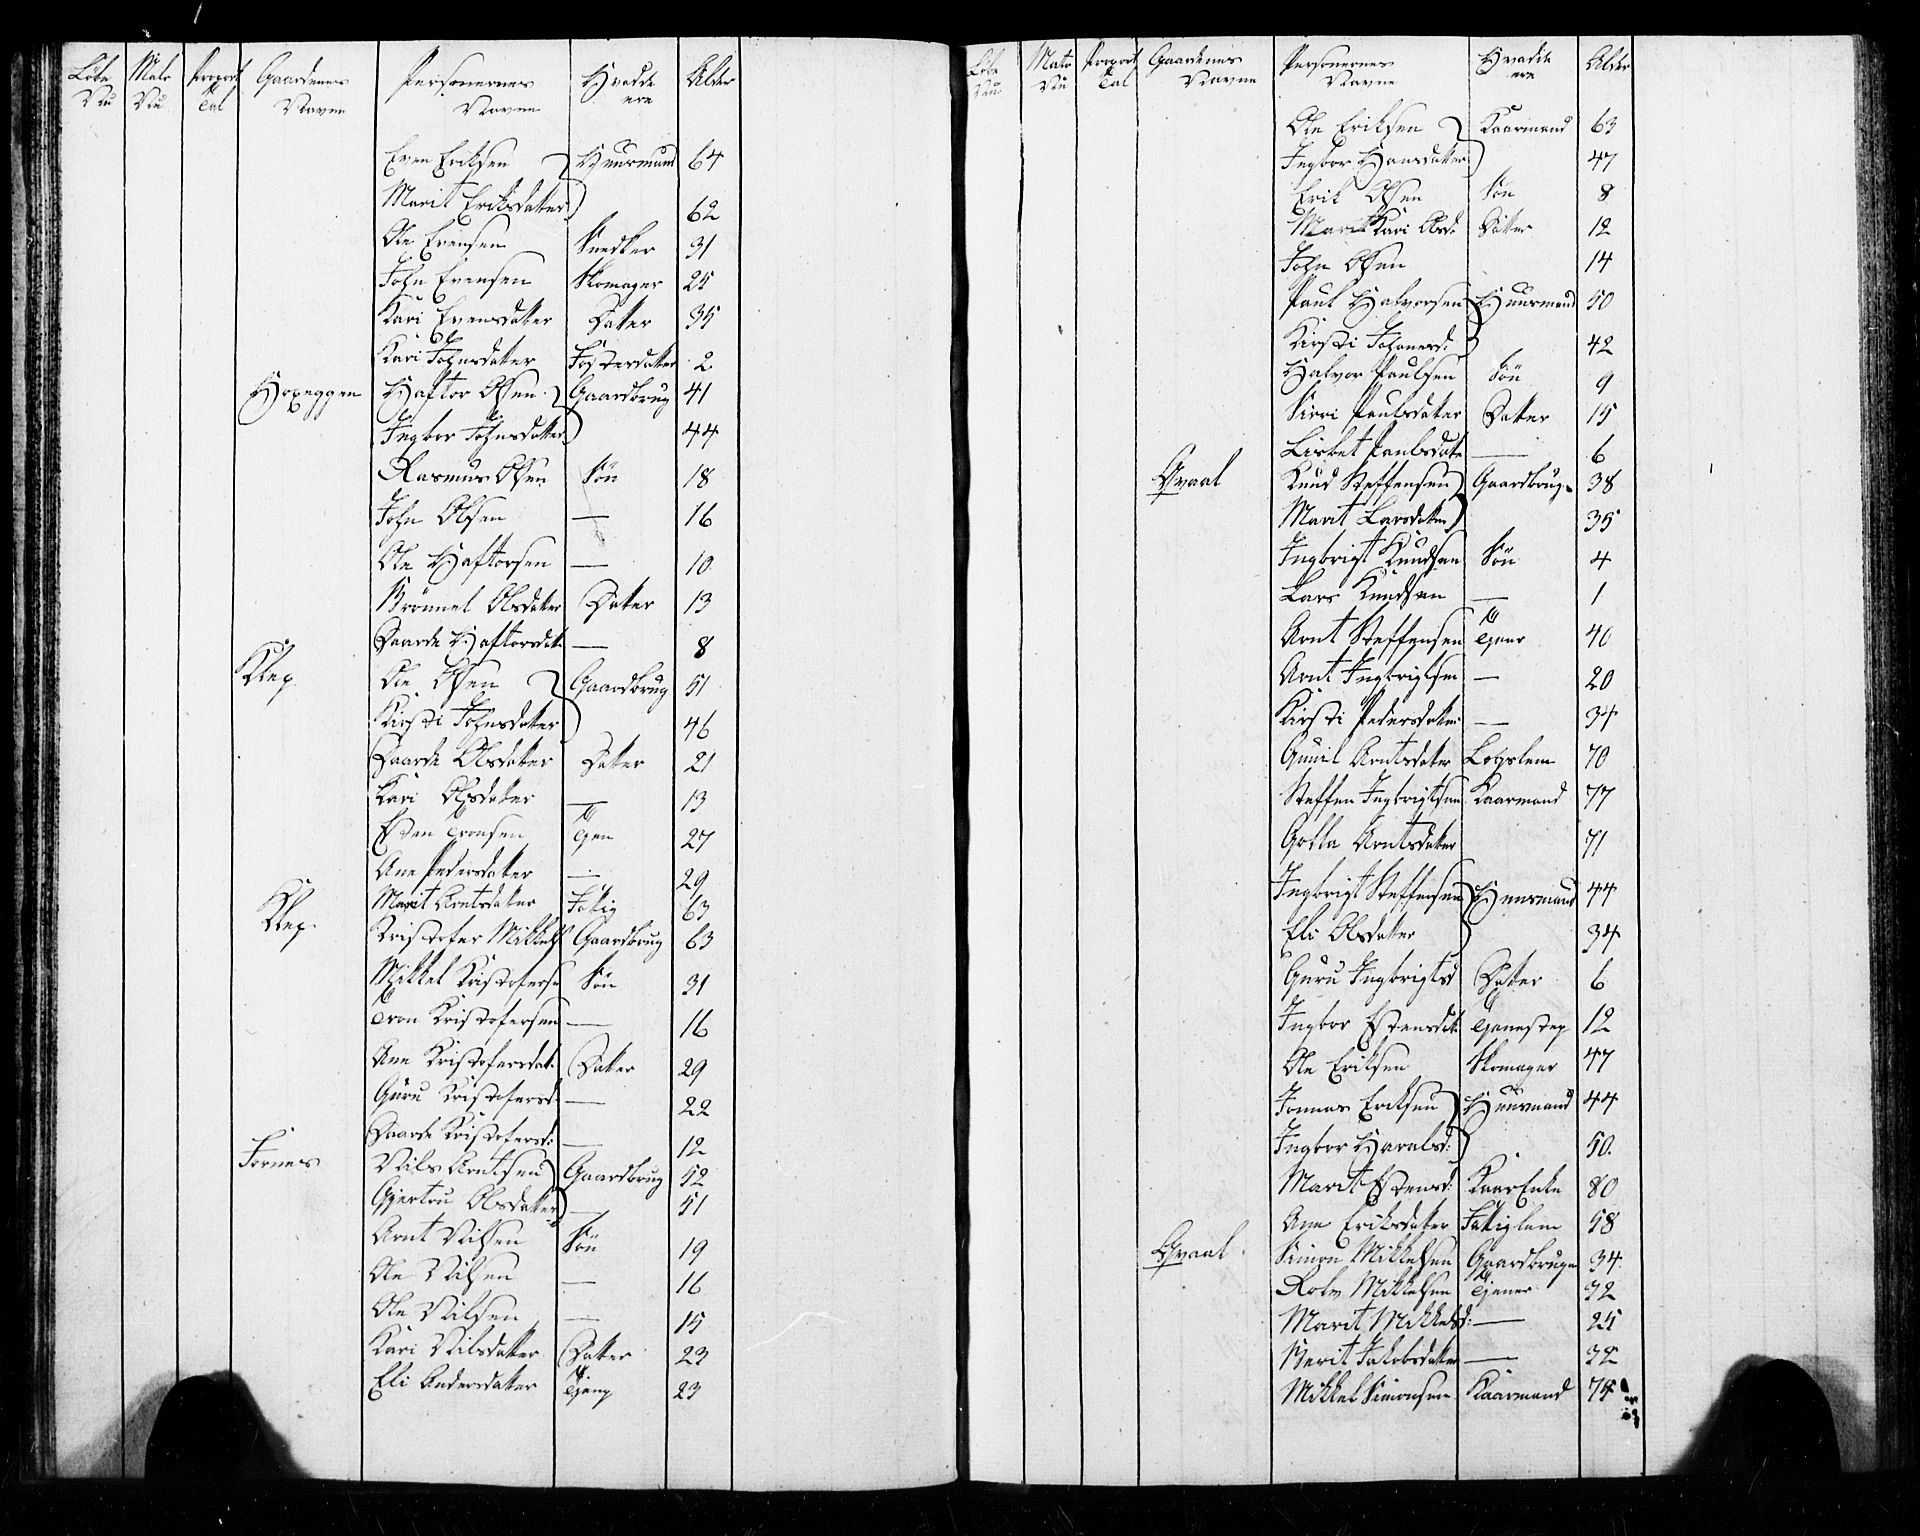 Løbe Nu | Matr Nu | Proport Tal | Gaardenes Navne | Personernes Navne | Hvad de ere | Alder
Even Eriksen | Huusmand | 64
Marit Eriksdatter | 62
Ole Evensen | Snedker | 31
John Evensen | Skomager | 25
Kari Evensdatter | Datter | 35
Kari Johnsdatter | Fosterdatter | 2
Hoxeggen | Haftor Olsen | Gaardbrug | 41
Ingbor Johnsdatter | 44
Rasmus Olsen | Søn | 18
John Olsen | — | 16
Ole Haftorsen | — | 10
Brønnel Olsdatter | Datter | 13
Baarde Haftorsdt: | — | 8
Klep | Ole Olsen | Gaardbrug | 51
Kirsti Johnsdatter | 46
Baarde Olsdatter | Datter | 21
Kari Olsdatter | — | 13
Esten Tronsen | Tjen | 27
Ane Pedersdatter | — | 29
Marit Arntsdatter | Fattig | 63
Klep | Kristofer Mikkels | Gaardbrug | 63
Mikkel Kristofersen | Søn | 31
Tron Kristofersen | — | 16
Ane Kristofersdat: | Datter | 29
Guru Kristofersd: | — | 22
Baarde Kristofersd: | — | 12
Fornes | Nils Arntsen | Gaardbrug | 52
Gjertru Olsdatter | — | 51
Arnt Nilsen | Søn | 19
Ole Nilsen | — | 16
Ole Nilsen | — | 15
Kari Nilsdatter | Datter | 23
Eli Andersdatter | Tjenp | 23
Løbe Nu: | Matr Nu | Proport Tal | Gaardenes Navne | Personernes Navne | Hvad de ere | Alder
Ole Eriksen | Kaarmand | 63
Ingbor Hansdatter | 47
Erik Olsen | Søn | 8
Marit Kari Olsd: | Datter | 12
John Olsen | 14
Paul Halvorsen | Huusmand | 50
Kirsti Johanesd: | 42
Halvor Paulsen | Søn | 9
Sirri Paulsdatter | Datter | 15
Lisbet Paulsdatte | — | 6
Qvaal | Knud Steffensen | Gaardbruge | 38
Marit Larsdatter | 35
Ingbrigt Knudsen | Søn | 4
Lars Knudsen | — | 1
Arnt Steffensen | Tjener | 40
Arnt Ingbrigtsen | — | 20
Kirsti Pedersdatter | — | 34
Gunil Arntsdatter | Legslem | 70
Steffen Ingbrigtsen | Kaarmand | 77
Golla Arntsdatter | 71
Ingbrigt Steffensen | Huusmand | 44
Eli Olsdatter | 34
Guru Ingbrigtsd | Datter | 6
Ingbor Estensdt: | Tjenestep | 12
Ole Eriksen | Skomager | 47
Jonnas Eriksen | Huusmand | 44
Ingbor Haralsd: | 50
Marit Estensd: | KaarEnke | 80
Ane Eriksdatter | Fattiglem | 58
Qvaal | Simon Mikkelsen | Gaardbruge | 34
Rolv Mikkelsen | Tjener | 32
Marit Mikkelsd: | — | 25
Berit Jakobsdatter | — | 32
Mikkel Simonsen | Kaarmand | 75